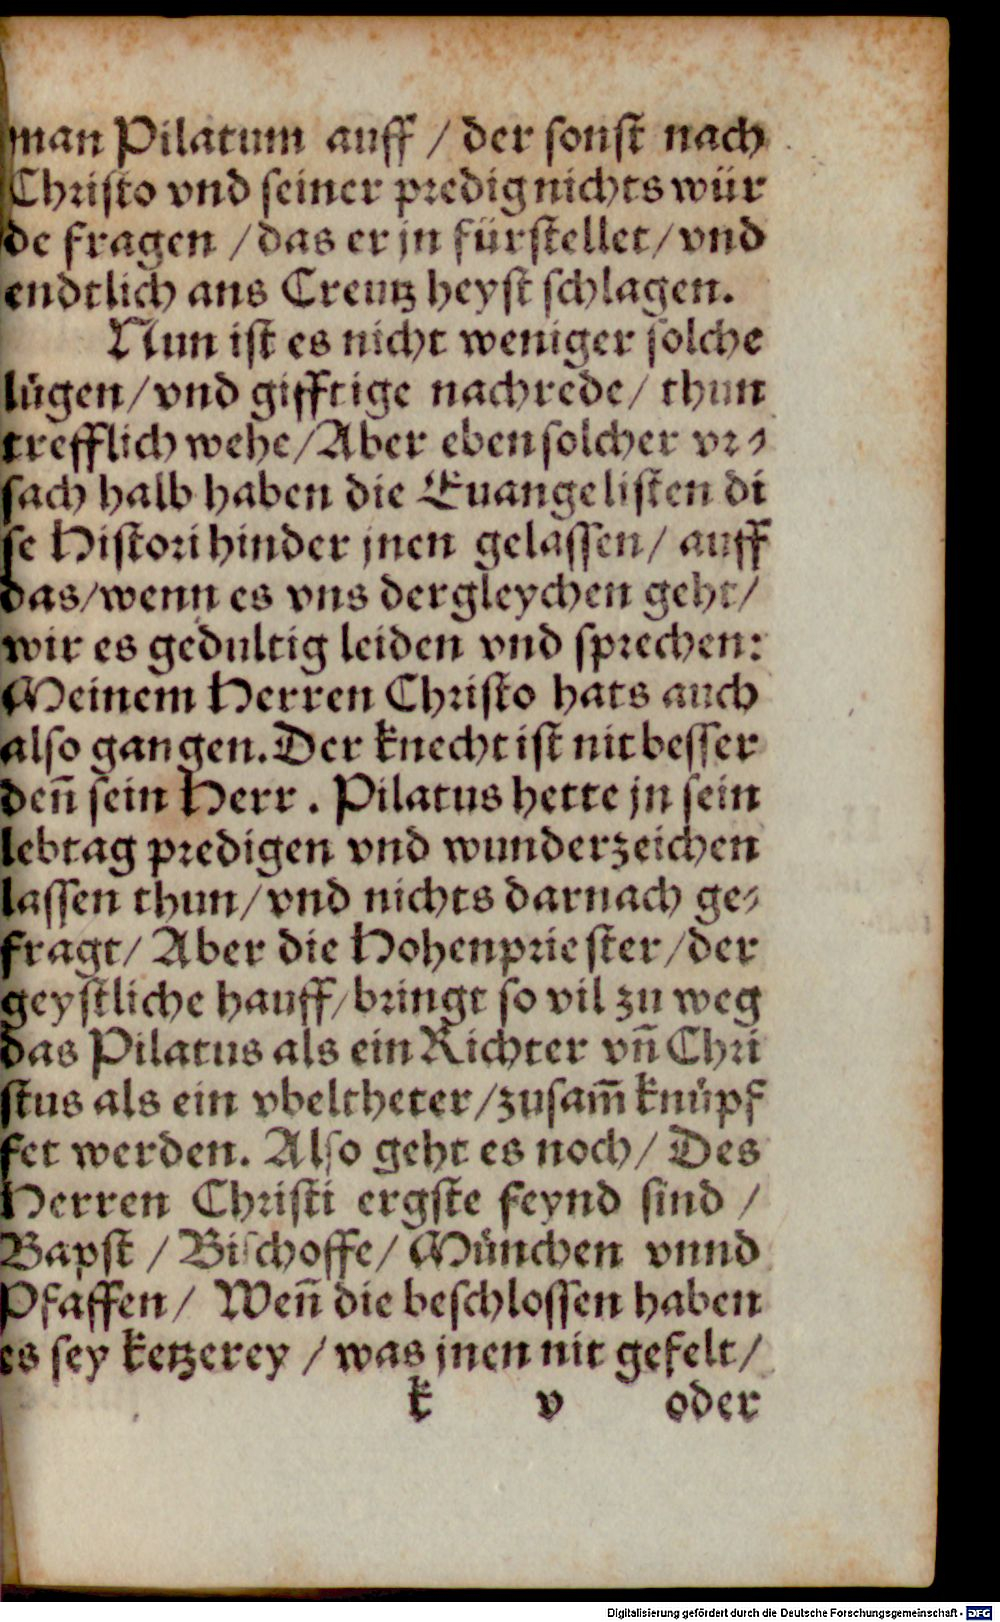 man Pilatum auff / der sonst nach
Christo vnd seiner predig nichts wür
de fragen / das er jn fürstellet / vnd
endtlich ans Creutz heyst schlagen.
Nun ist es nicht weniger solche
lügen / vnd gifftige nachrede / thun
trefflich wehe / Aber eben solcher vr⸗
sach halb haben die Euangelisten di
se Histori hinder jnen gelassen / auff
das / wenn es vns dergleychen geht /
wir es gedultig leiden vnd sprechen:
Meinem Herren Christo hats auch
also gangen. Der knecht ist nit besser
deñ sein Herr. Pilatus hette jn sein
lebtag predigen vnd wunderzeichen
lassen thun / vnd nichts darnach ge⸗
fragt / Aber die Hohenpriester / der
geystliche hauff / bringt so vil zu weg
das Pilatus als ein Richter vñ Chri
stus als ein vbeltheter / zusam̃ knüpf
fet werden. Also geht es noch / Des
Herren Christi ergste feynd sind /
Bapst / Bischoffe / München vnnd
Pfaffen / Weñ die beschlossen haben
es sey ketzerey / was jnen nit gefelt /
k v oder
Digitalisierung gefördert durch die Deutsche Forschungsgemeinschaft - DFG